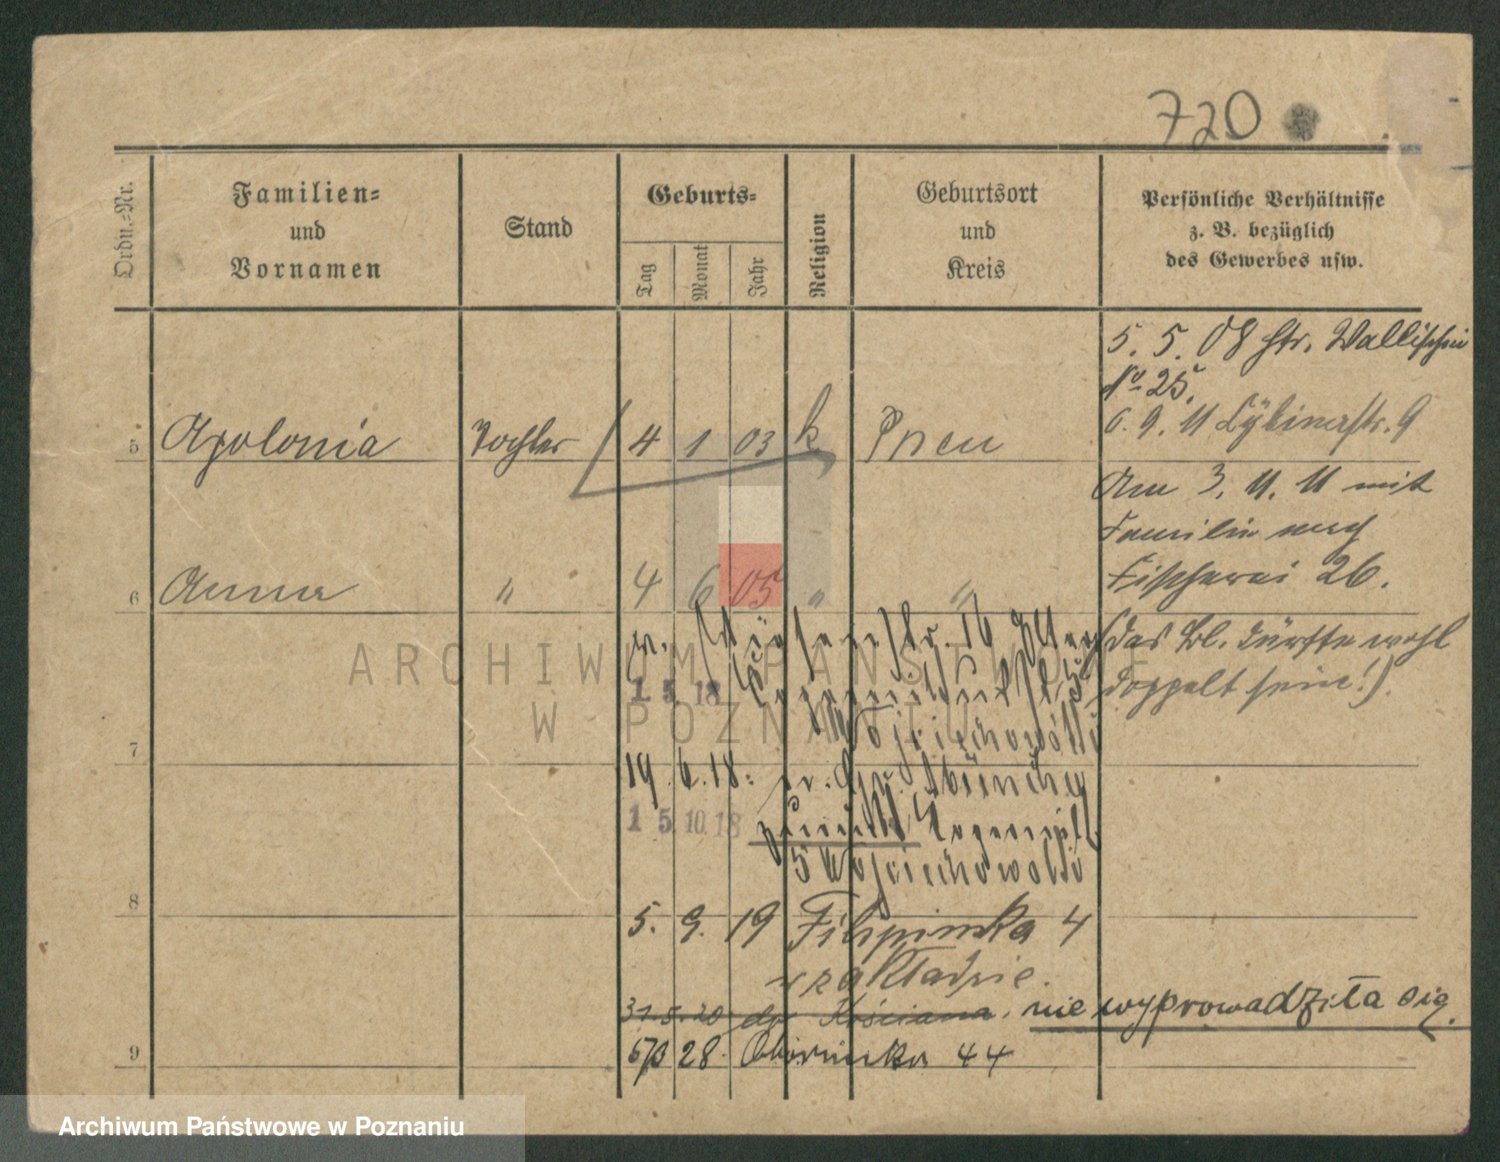 720
Ordn.-Nr.
Familien-
und
Vornamen
Stand
Geburts-
Tag
Monat
Jahr
Religion
Geburtsort
und
Kreis
Persönliche Verhältnisse
z. B. bezüglich
des Gewerbes usw.
5 Apolonia Tochter 4 1 03 k Posen
5. 5. 08 str. Wallischei
No 25.
6. 9. 11 Cybinastr. 9
Am 3. 11. 11 mit
Familie nach
Fischerei 26.
6 Anna " 4 6 05 " "
(Das Bl. dürfte wohl
doppelt sein!).
1 5 18
7
19. 6. 18.
1 5. 10. 18
8
5. 9. 19 4
w zakładzie.
31.5.20 do Kościana. nie wyprowadziła się.
9
28. Obornicka 44
ARCHIWUM PAŃSTWOWE
W POZNANIU
Archiwum Państwowe w Poznaniu